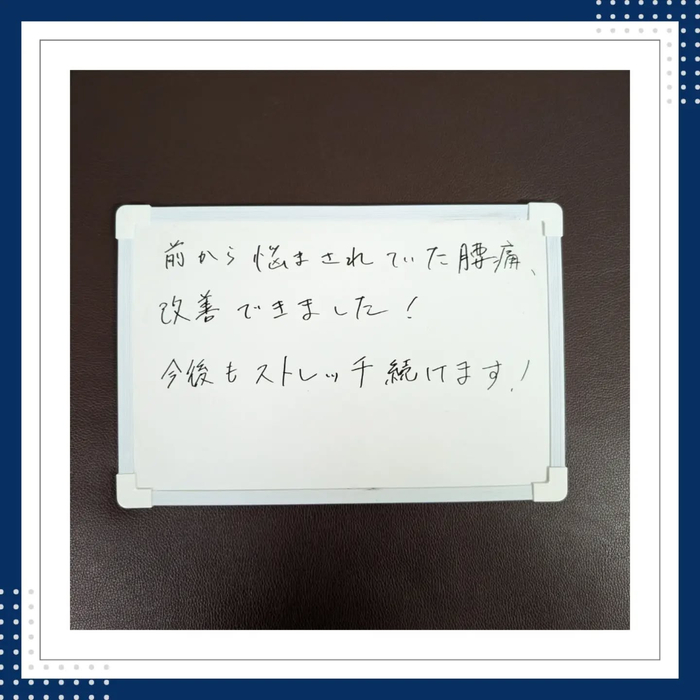 前から悩まされていた腰痛、
改善できました！
今後もストレッチ続けます！